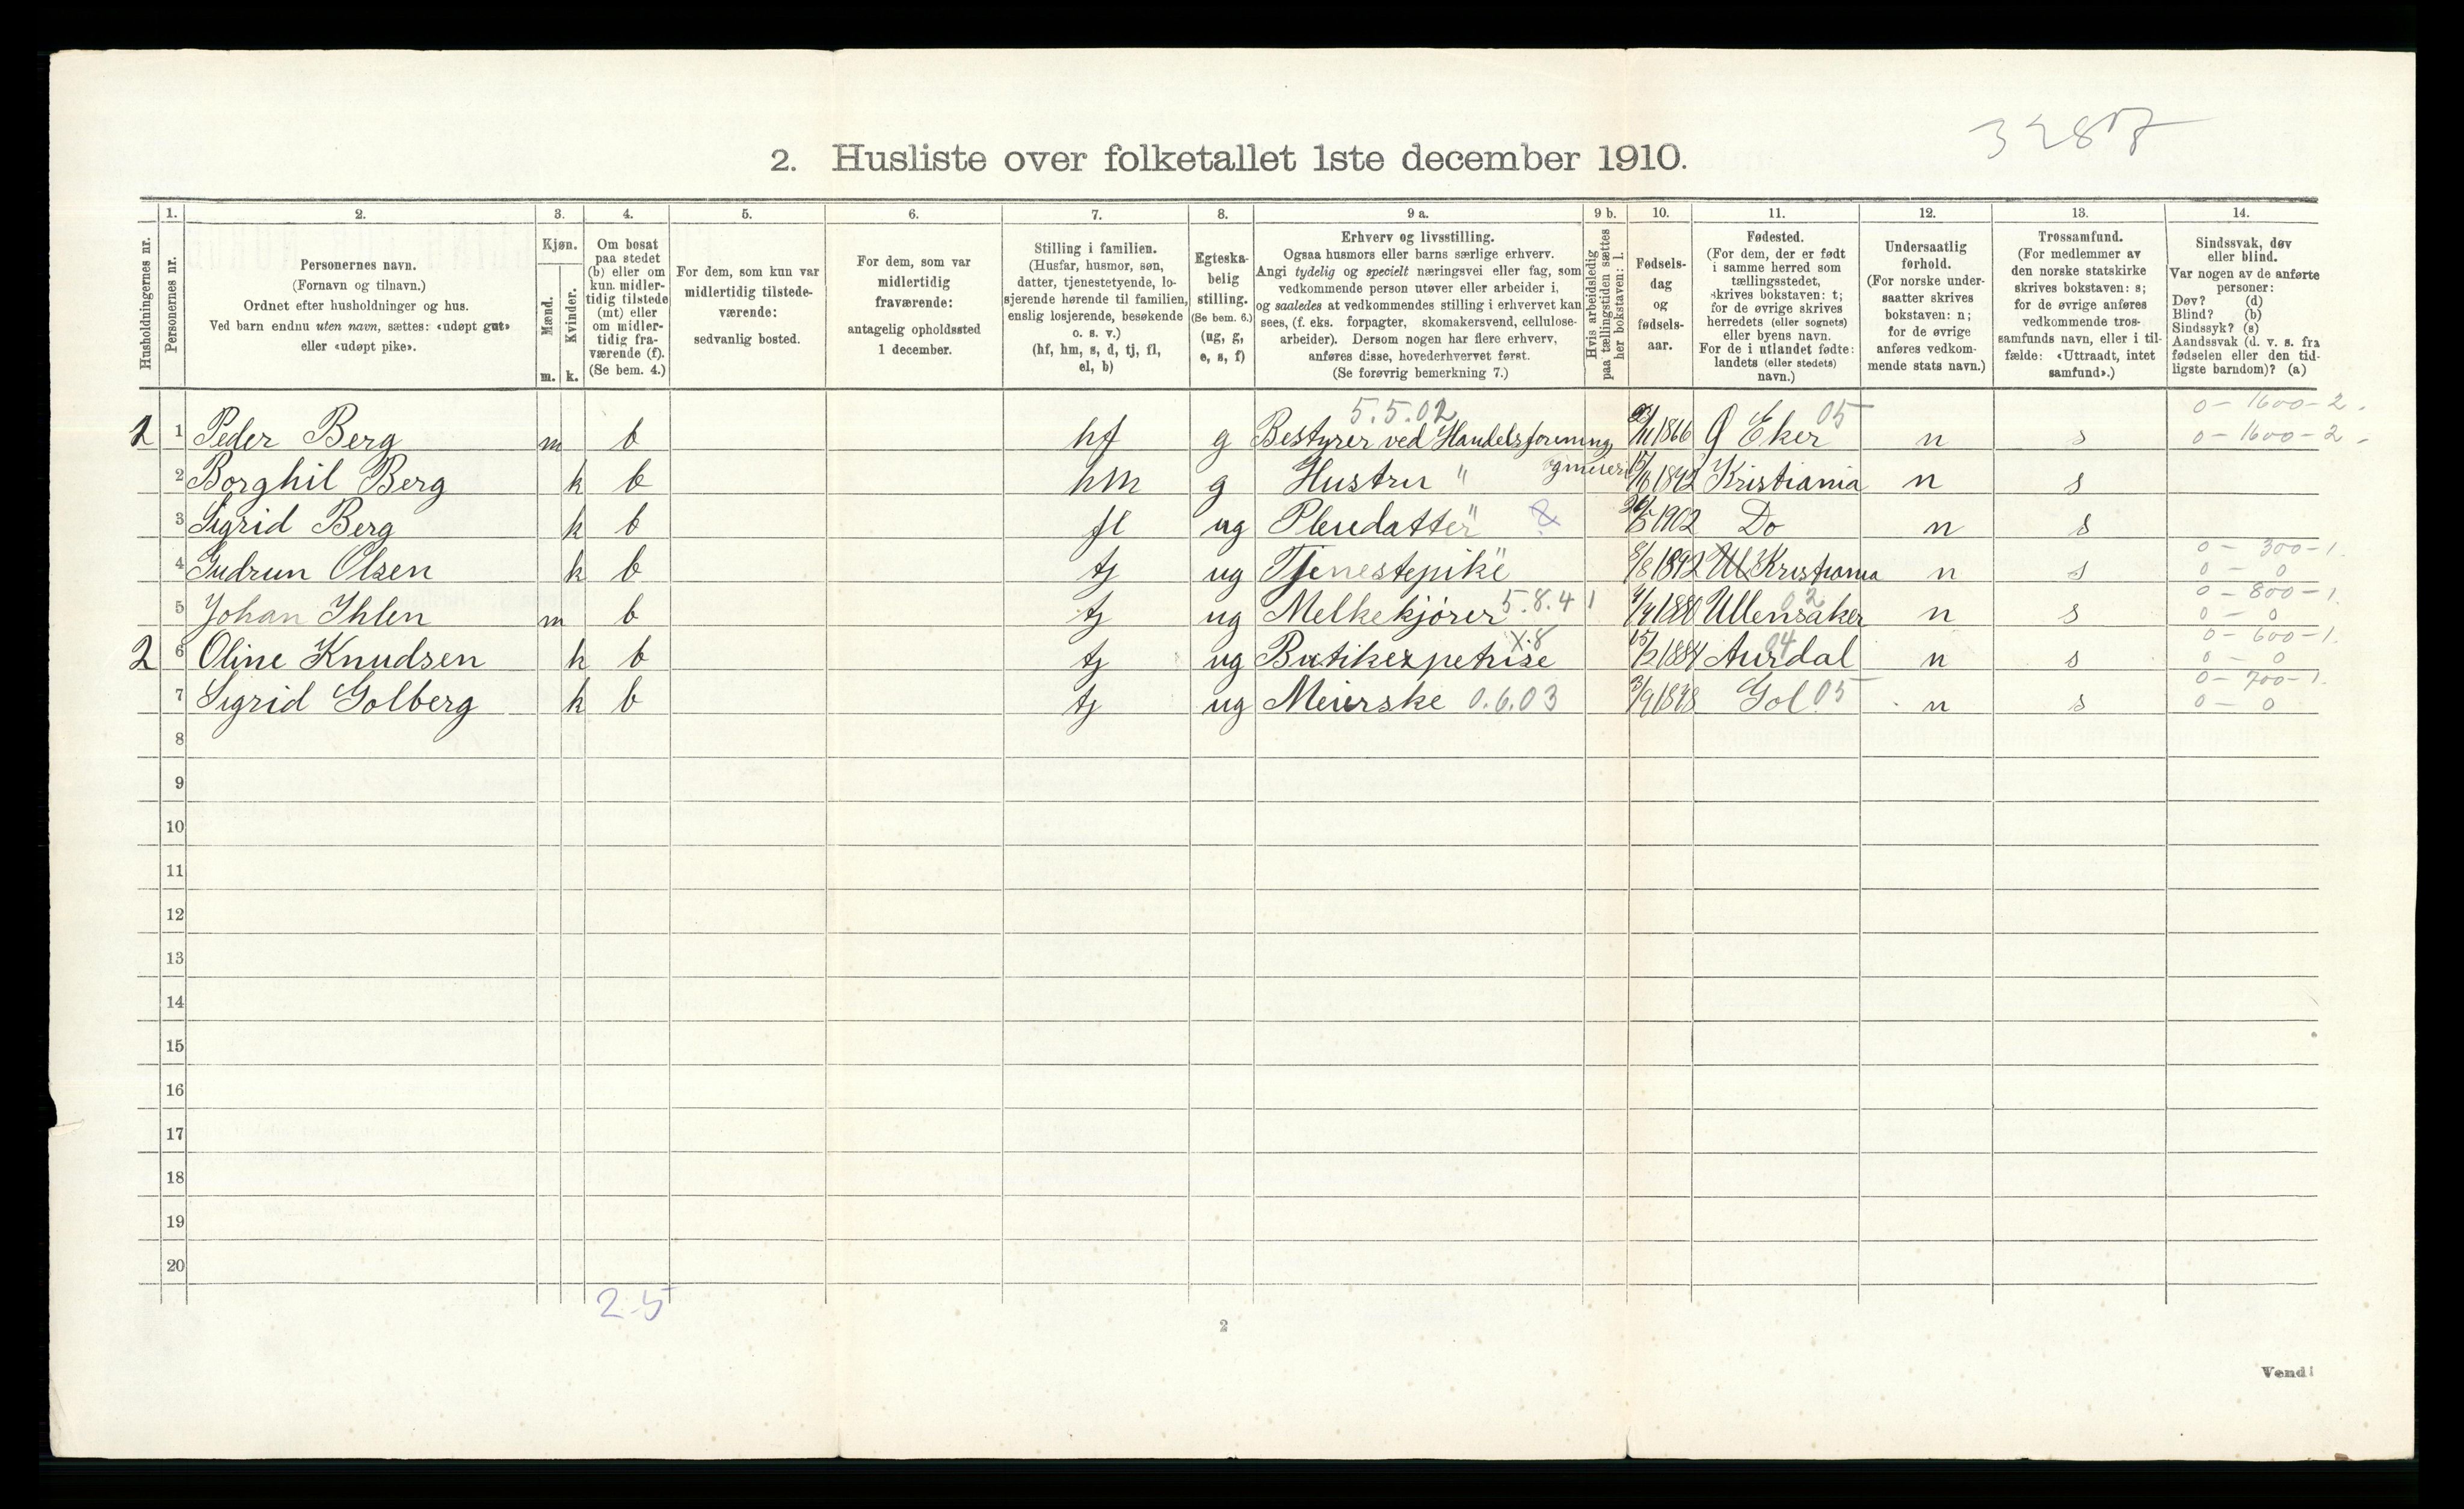 3287
2. Husliste over folketallet 1ste december 1910.
Husholdningernes nr.
1. Personernes nr.
2. Personernes navn.
(Fornavn og tilnavn.)
Ordnet efter husholdninger og hus.
Ved barn endnu uten navn, sættes: «udøpt gut»
eller «udøpt pike».
3. Kjøn.
Mænd. m.
Kvinder. k.
4. Om bosat
paa stedet
(b) eller om
kun midler-
tidig tilstede
(mt) eller
om midler-
tidig fra-
værende (f).
(Se bem. 4.)
5. For dem, som kun var
midlertidig tilstede-
værende:
sedvanlig bosted.
6. For dem, som var
midlertidig
fraværende:
antagelig opholdssted
1 december.
7. Stilling i familien.
(Husfar, husmor, søn,
datter, tjenestetyende, lo-
sjerende hørende til familien,
enslig losjerende, besøkende
o. s. v.)
(hf, hm, s, d, tj, fl,
el, b)
8. Egteska-
belig
stilling.
(Se bem. 6.)
(ug, g,
e, s, f)
9 a. Erhverv og livsstilling.
Ogsaa husmors eller barns særlige erhverv.
Angi tydelig og specielt næringsvei eller fag, som
vedkommende person utøver eller arbeider i,
og saaledes at vedkommendes stilling i erhvervet kan
sees, (f. eks. forpagter, skomakersvend, cellulose-
arbeider). Dersom nogen har flere erhverv,
anføres disse, hovederhvervet først.
(Se forøvrig bemerkning 7.)
9 b. Hvis arbeidsledig
paa tællingstiden sættes
her bokstaven: l.
10. Fødsels-
dag
og
fødsels-
aar.
11. Fødested.
(For dem, der er født
i samme herred som
tællingsstedet,
skrives bokstaven: t;
for de øvrige skrives
herredets (eller sognets)
eller byens navn.
For de i utlandet fødte:
landets (eller stedets)
navn.)
12. Undersaatlig
forhold.
(For norske under-
saatter skrives
bokstaven: n;
for de øvrige
anføres vedkom-
mende stats navn.)
13. Trossamfund.
(For medlemmer av
den norske statskirke
skrives bokstaven: s;
for de øvrige anføres
vedkommende tros-
samfunds navn, eller i til-
fælde: «Uttraadt, intet
samfund».)
14. Sindssvak, døv
eller blind.
Var nogen av de anførte
personer:
Døv? (d)
Blind? (b)
Sindssyk? (s)
Aandssvak (d. v. s. fra
fødselen eller den tid-
ligste barndom)? (a)
5.5.02 05 0 - 1600 - 2.
1 1 Peder Berg m b hf g Bestyrer ved Handelsforening 1866 Ø Eker n s 0 - 1600 - 2
og meieri
2 Borghil Berg k b hm g Hustru " Kristiania n s
3 Sigrid Berg k b fl ug Pleiedatter " 1902 Do n s
0 - 300 - 1.
4 Gudrun Olsen k b tj ug Tjenestepike " 8/8 1892 Kristiania n s 0 - 0
0 - 800 - 1.
5 Johan Ihlen m b tj ug Melkekjører 5.8.41 Ullensaker 02 n s 0 - 0
0 - 600 - 1.
2 6 Oline Knudsen k b tj ug Butikexpetrise X.8 15/2 1884 Aurdal 04 n s 0 - 0
0 - 700 - 1.
7 Sigrid Golberg k b tj ug Meierske 0.6.03 Gol 05 n s 0 - 0
8
9
10
11
12
13
14
15
16
17
18
19
20
2-5
2
Vend!